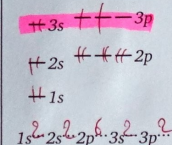 3s 3p
2s 2p
1s
1s2 2s2 2p6 3s2 3p2